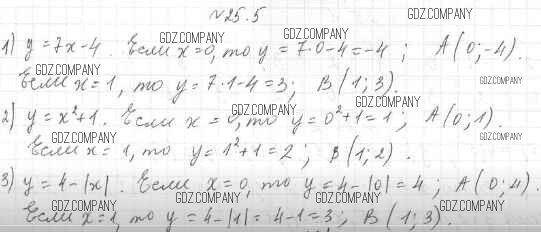 №25.5
GDZ.COMPANY
GDZ.COMPANY GDZ.COMPANY
1) y = 7x-4. Если x=0, то y = 7·0-4=-4; A(0;-4).
GDZ.COMPANY GDZ.COMPANY
Если x=1, то y=7·1-4=3; B(1;3).
GDZ.COMPANY GDZ.COMPANY GDZ.COMPANY
2) y=x²+1. Если x=0, то y=0²+1=1; A(0;1).
GDZ.COMPANY GDZ.COMPANY
Если x=1, то y=1²+1=2; B(1;2).
GDZ.COMPANY GDZ.COMPANY GDZ.COMPANY
3) y=4-|x|. Если x=0, то y=4-|0|=4; A(0;4).
GDZ.COMPANY GDZ.COMPANY GDZ.COMPANY
Если x=1, то y=4-|1|=4-1=3; B(1;3).